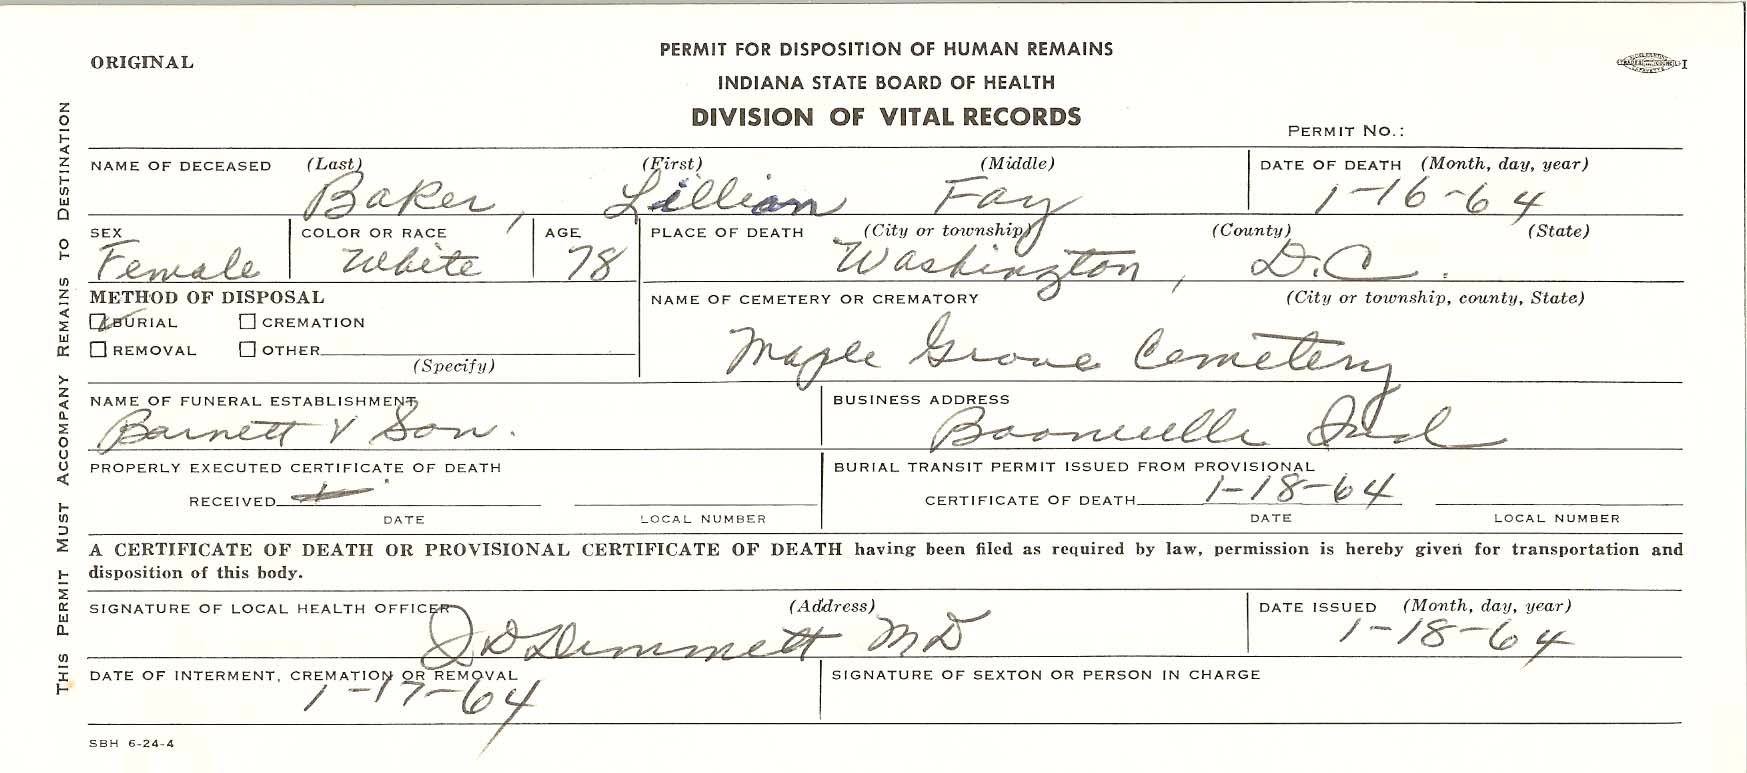 ORIGINAL
PERMIT FOR DISPOSITION OF HUMAN REMAINS
INDIANA STATE BOARD OF HEALTH
DIVISION OF VITAL RECORDS
PERMIT NO.:
THIS PERMIT MUST ACCOMPANY REMAINS TO DESTINATION
NAME OF DECEASED (Last) (First) (Middle) DATE OF DEATH (Month, day, year)
Baker, Lillian Fay 1-16-64
SEX COLOR OR RACE AGE PLACE OF DEATH (City or township) (County) (State)
Female White 78 Washington, D.C.
METHOD OF DISPOSAL NAME OF CEMETERY OR CREMATORY (City or township, county, State)
BURIAL CREMATION
Maple Grove Cemetery
REMOVAL OTHER
(Specify)
NAME OF FUNERAL ESTABLISHMENT BUSINESS ADDRESS
Barnett & Son. Boonville Ind
PROPERLY EXECUTED CERTIFICATE OF DEATH BURIAL TRANSIT PERMIT ISSUED FROM PROVISIONAL
RECEIVED CERTIFICATE OF DEATH 1-18-64
DATE LOCAL NUMBER DATE LOCAL NUMBER
A CERTIFICATE OF DEATH OR PROVISIONAL CERTIFICATE OF DEATH having been filed as required by law, permission is hereby given for transportation and
disposition of this body.
SIGNATURE OF LOCAL HEALTH OFFICER (Address) DATE ISSUED (Month, day, year)
MD 1-18-64
DATE OF INTERMENT, CREMATION OR REMOVAL SIGNATURE OF SEXTON OR PERSON IN CHARGE
1-17-64
SBH 6-24-4